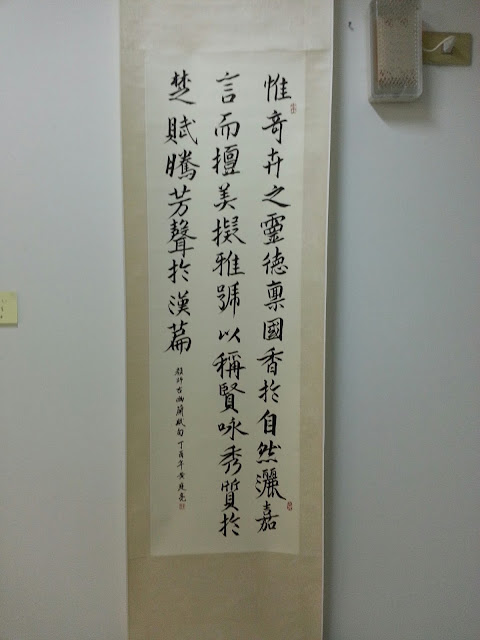 惟奇卉之靈德稟國香於自然灑嘉
言而擅美擬雅號以稱賢咏秀質於
楚賦騰芳聲於漢篇
顏師古幽蘭賦句丁酉年黃